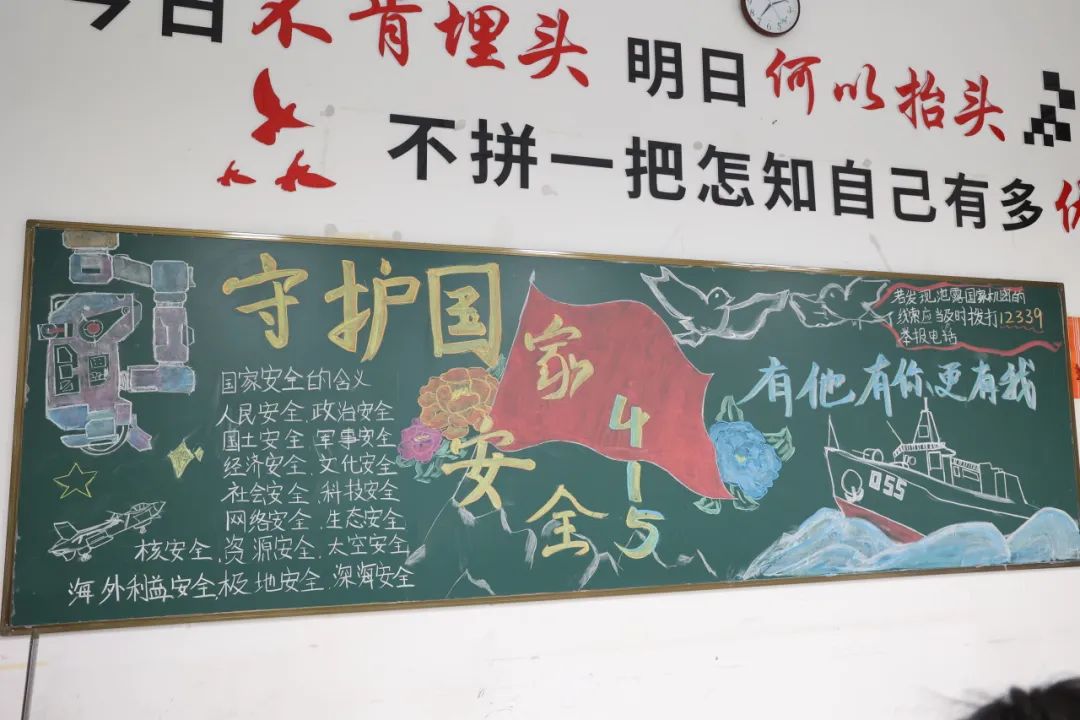 今日不肯埋头 明日何以抬头
不拼一把怎知自己有多
守护国家安全
415
国家安全的含义
人民安全、政治安全
国土安全、军事安全
经济安全、文化安全
社会安全、科技安全
网络安全、生态安全
核安全、资源安全、太空安全
海外利益安全、极地安全、深海安全
若发现泄露国家机密的
线索应当及时拨打12339
举报电话
有他有你更有我
055